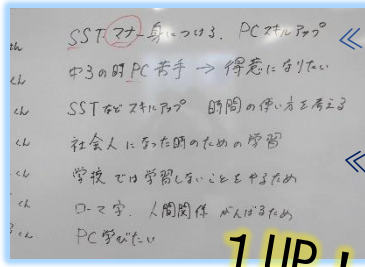 くん SST マナー身につける、PCスキルアップ
くん 中3の時PC苦手 → 得意になりたい
くん SSTなどスキルアップ 時間の使い方を考える
くん 社会人になった時のための学習
くん 学校では学習しないことをやるため
くん ローマ字、人間関係 がんばるため
くん PC学びたい
1 UP!